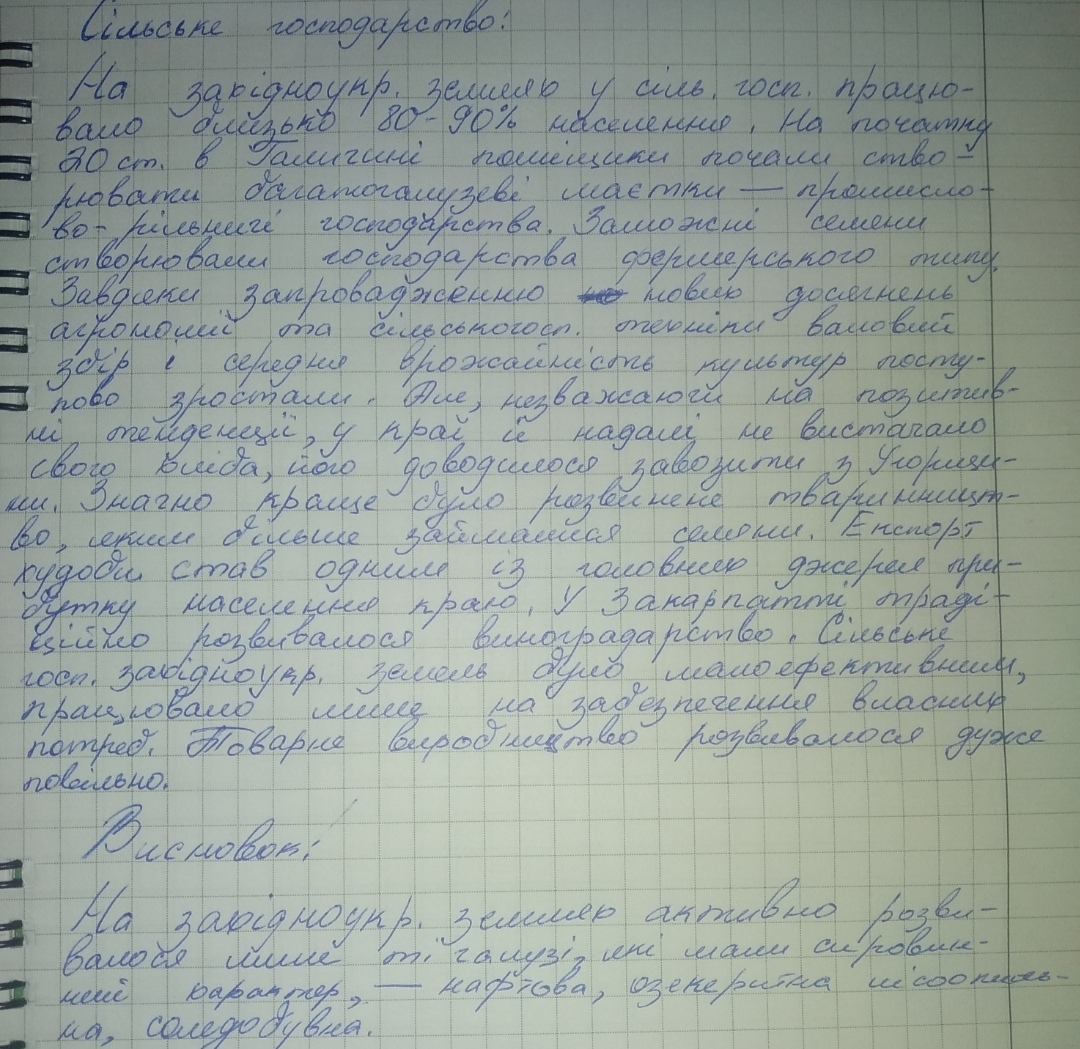 Сільське господарство:
На західноукр. землях у сіль. госп. працю-
вало близько 80-90% населення. На початку
20 ст. в Галичині поміщики почали ство-
рювати багатогалузеві маєтки — промисло-
во-рільничі господарства. Заможні селяни
створювали господарства фермерського типу.
Завдяки запровадженню нових досягнень
агрономії та сільськогосп. техніки валовий
збір і середня врожайність культур посту-
пово зростали. Але, незважаючи на позитив-
ні тенденції, у краї й надалі не вистачало
свого хліба, його доводилося завозити з Угорщи-
ни. Значно краще було розвинене тваринницт-
во, яким більше займалися селяни. Експорт
худоби став одним із головних джерел при-
бутку населення краю. У Закарпатті траді-
ційно розвивалося виноградарство. Сільське
госп. західноукр. земель було малоефективним,
працювало лише на забезпечення власних
потреб. Товарне виробництво розвивалося дуже
повільно.
Висновок:
На західноукр. землях активно розви-
валося лише ті галузі, які мали сировин-
ний характер, — нафтова, озекеритна лісопиль-
на, соледобувна.